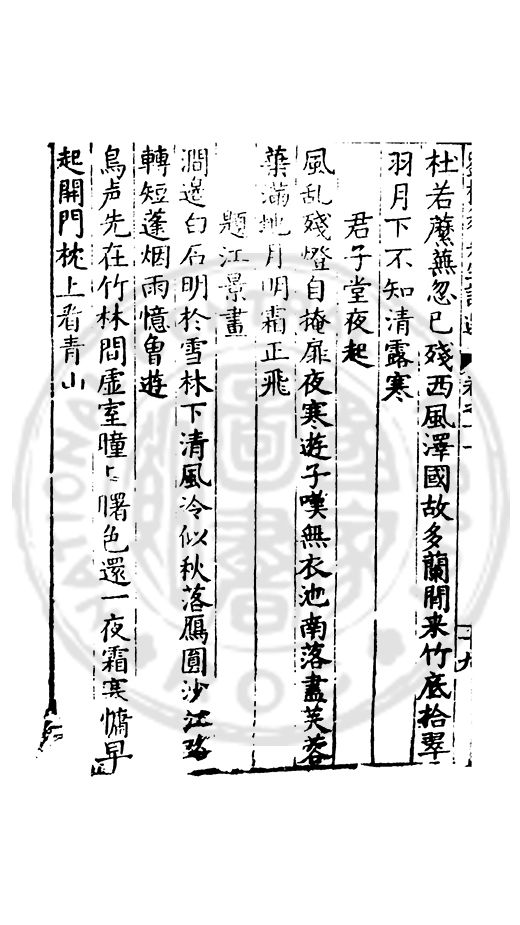 杜若蘼蕪忽已殘西風澤國故多蘭閒来竹底拾翠
羽月下不知清露寒
君子堂夜起
風乱殘燈自掩扉夜寒遊子嘆無衣池南落盡芙蓉
葉滿地月明霜正飛
題江景畫
澗邊白石明於雪林下清風冷似秋落鴈圓沙江路
轉短蓬烟雨憶曾遊
鳥声先在竹林間虛室曈〻曙色還一夜霜寒慵早
起開門枕上看青山